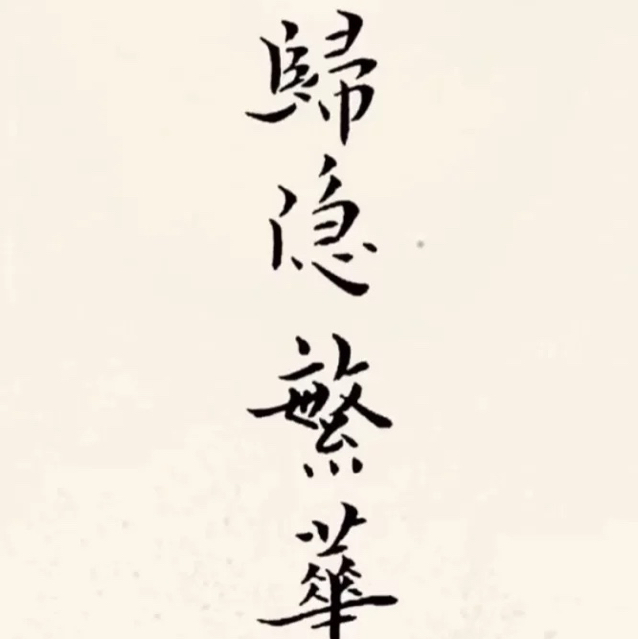 歸隐繁華